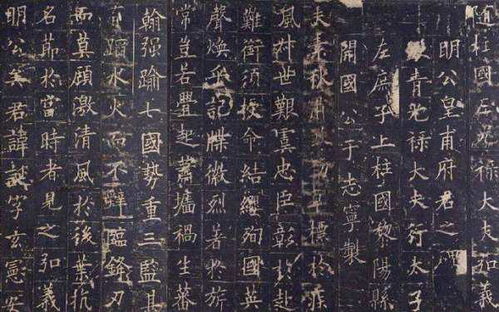 柱國左光祿大夫弘義
明公皇甫府君之碑
青光祿大夫行太子
左庶子上柱國黎陽縣
開國公于志寧製
夫素秋肅勁草標於疾
風叔世艱虞忠臣彰於赴
難銜須授命結纓殉國英
聲煥乎記牒徽烈著於旂
常豈若釁起蕭墻禍生蕃
翰強踰七國勢重三監其
有蹈水火而不辤臨鋒刃
而莫顧激清風於後葉抗
名節於當時者見之弘義
明公矣君諱誕字玄憲安